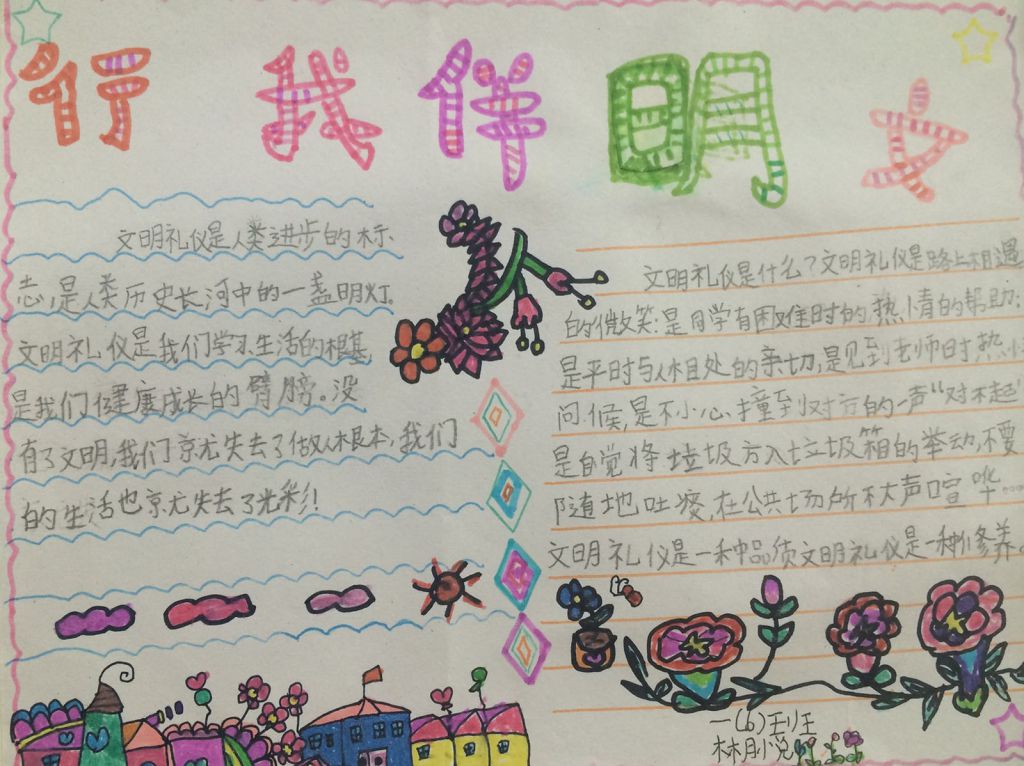 文明伴我行
文明礼仪是人类进步的标
志,是人类历史长河中的一盏明灯.
文明礼仪是我们学习生活的根基,
是我们健康成长的臂膀。没
有了文明,我们就失去了做人根本,我们
的生活也就失去了光彩!
文明礼仪是什么?文明礼仪是路上相遇
的微笑:是同学有困难时的热情的帮助;
是平时与人相处的亲切,是见到老师时热
问候,是不小心撞到对方的一声“对不起
是自觉将垃圾方入垃圾箱的举动,不要
随地吐痰,在公共场所不大声喧哗...
文明礼仪是一种品质文明礼仪是一种修养。
一(6)班
林